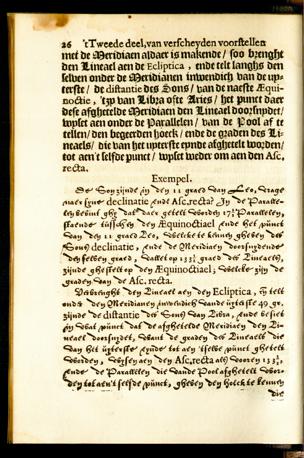 26 'tTweede deel, van verscheyden voorstellen
met de Meridiaen aldaer is makende / soo brenght
den Lineael aen de Ecliptica, ende telt langhs den
selven onder de Meridianen inwendich van de up-
terste / de distantie des Sons / van de naeste Æqui-
noctie, 'tzy van Libra ofte Aries / het punct daer
dese afghetelde Meridiaen den Lineael doorsnydet /
wyst aen onder de Parallelen / van de Pool af te
tellen / den begeerden hoeck / ende de graden des Li-
neaels / die van het upterste eynde afghetelt worden /
tot aen 't selfde punct / wyst weder om aen den Asc.
recta.
Exempel.
De Son zijnde in den 11 graed van Leo, vrage
naer zijne declinatie ende Asc. recta? In de Paralle-
len bevint ghy dat daer getelt worden 17½ Parallelen,
staende tusschen den Æquinoctiael ende het punct
van den 11 graed Leo, welcke te kennen gheven des
Sons declinatie, ende de Meridiaen doorsnydende
den selven graed, valt op 133½ graed des Lineaels,
zijnde ghestelt op den Æquinoctiael; welcke zijn de
graden van de Asc. recta.
Verbrenght den Lineael aen den Ecliptica, en telt
onder den Meridianen inwendich vande uyterste 49 gr.
zijnde de distantie der Sons van Libra, ende besiet
in wat punct dat de afghetelde Meridiaen den Li-
neael doorsnydet, want de graden des Lineaels die
van het uyterste eynde tot aen 'tselve punct ghetelt
worden, wysen aen den Asc. recta als vooren 133½,
Ende de Parallelen die vande Pool afghetelt worden
tot aen 't selfde punct, gheven den hoeck te kennen
die